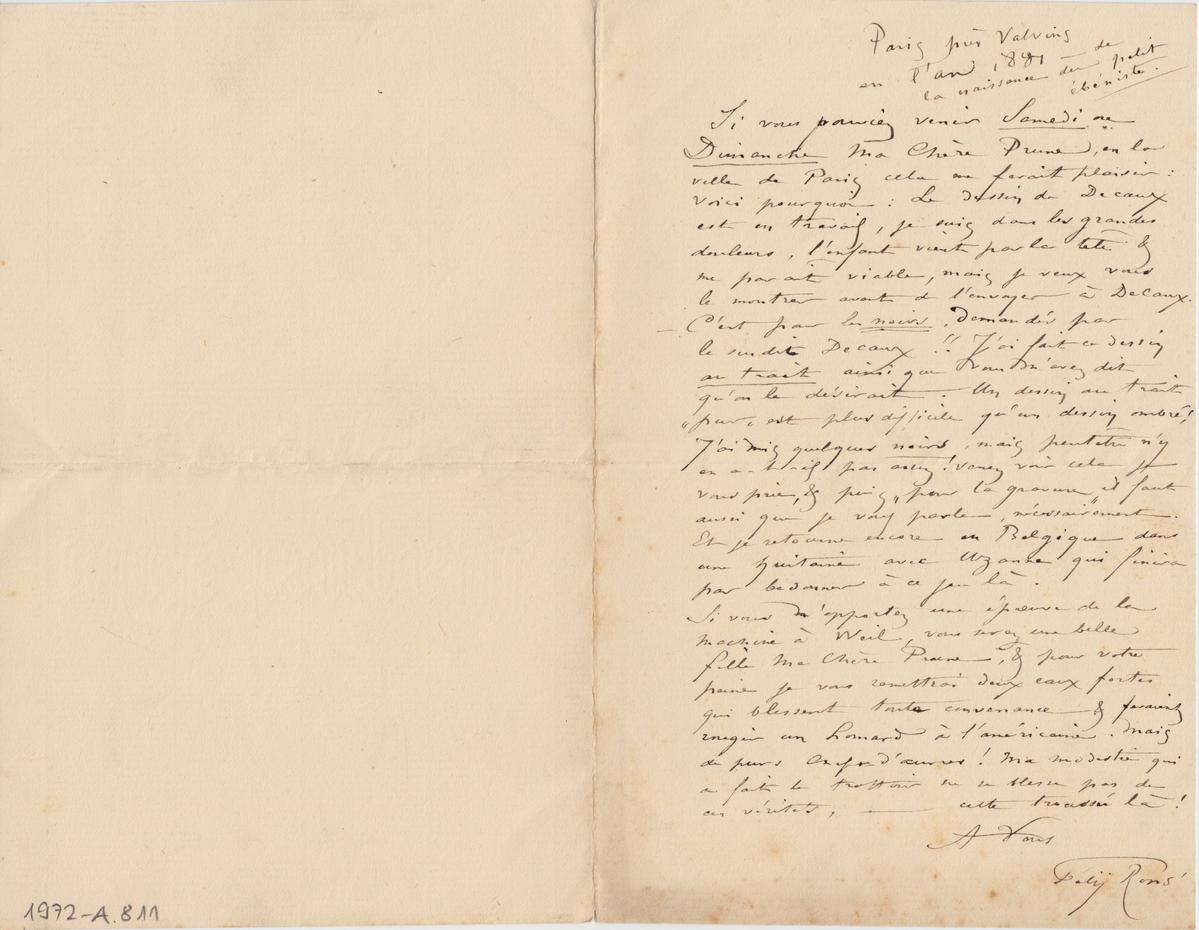 Paris près Valvins
en l'an 1881 de
la naissance du petit
ébéniste.
Si vous pouviez venir Samedi ou
Dimanche Ma Chère Prune, en la
ville de Paris cela me ferait plaisir :
Voici pourquoi : Le dessin de Decaux
est en travail, je suis dans les grandes
douleurs, l'enfant vient par la tête &
me parait viable, mais je veux vous
le montrer avant de l'envoyer à Decaux.
– C'est pour les noirs, demandés par
le susdit Decaux !! J'ai fait ce dessin
au trait ainsi que vous m'avez dit
qu'on le désirait. Un dessin au trait
"pur" est plus difficile qu'un dessin ombré!
J'ai mis quelques noirs, mais peutêtre n'y
en a-t-il pas assez! Venez voir cela je
vous prie, & puis "pour la gravure il faut
aussi que je vous parle "nécessairement".
Et je retourne encore en Belgique dans
une huitaine avec Uzanne qui finira
par bedonner à ce jeu là.
Si vous m'apportez une épreuve de la
machine à Weil, vous serez une belle
fille Ma Chère Prune, & pour votre
peine je vous remettrai deux eaux fortes
qui blessent toute convenance & feraient
rougir un homard à l'américaine. Mais
de purs chefs-d'œuvres! Ma modestie qui
a fait le trottoir ne se blesse pas de
ces vérités, — cette troussée là!
A Vous
Félicien Rops
1972-A.811